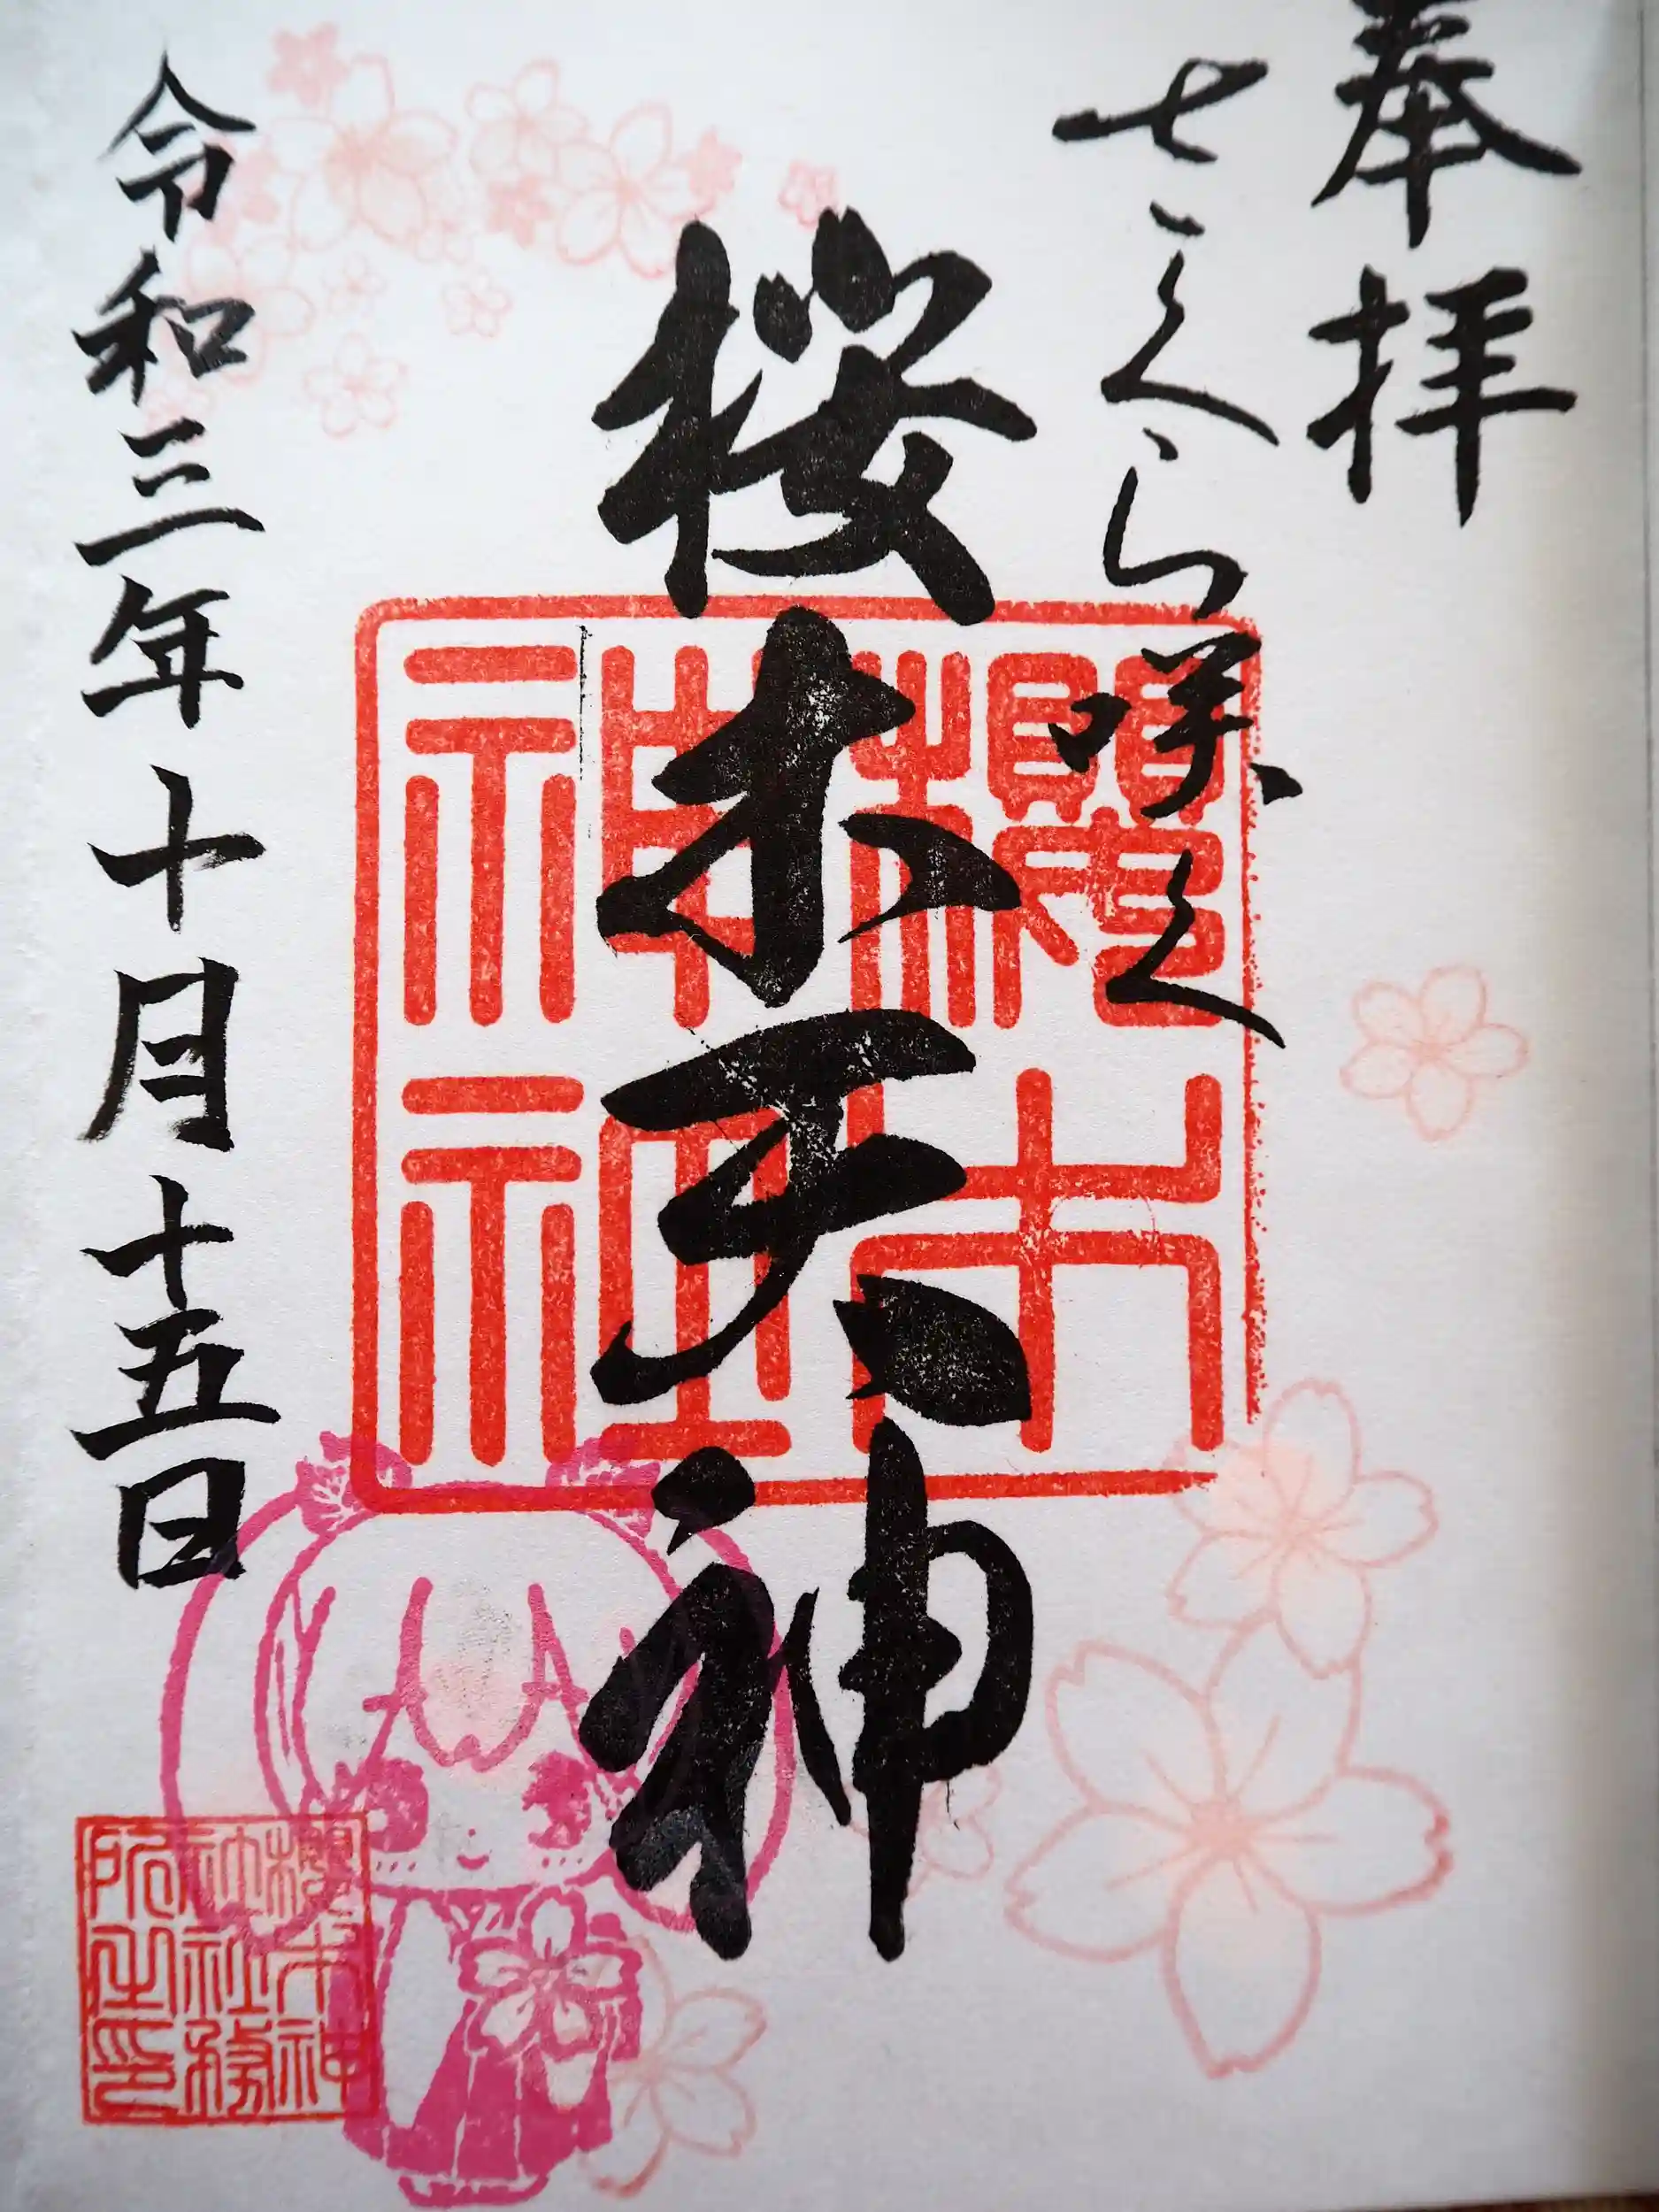 奉拝
さくら咲く
桜木天神
櫻木
神社
令和三年十月十五日
櫻木神
社社務
所之印